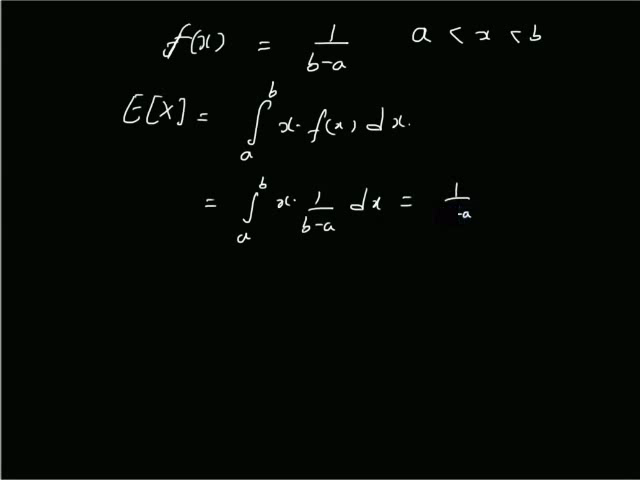 f(x) = 1/(b-a) a < x < b
E[X] = ∫_a^b x · f(x) dx.
= ∫_a^b x · 1/(b-a) dx = 1/(-a)